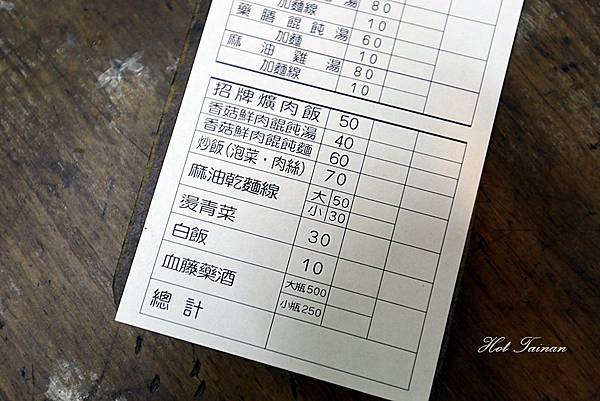 湯 80
加麵線
藥膳餛飩湯 10
加麵 60
麻油雞湯 10
加麵線 80
10
招牌爌肉飯 50
香菇鮮肉餛飩湯 40
香菇鮮肉餛飩麵 60
炒飯(泡菜・肉絲) 70
麻油乾麵線 大 50
小 30
燙青菜 30
白飯 10
血藤藥酒 大瓶500
小瓶250
總計
Hot Tainan